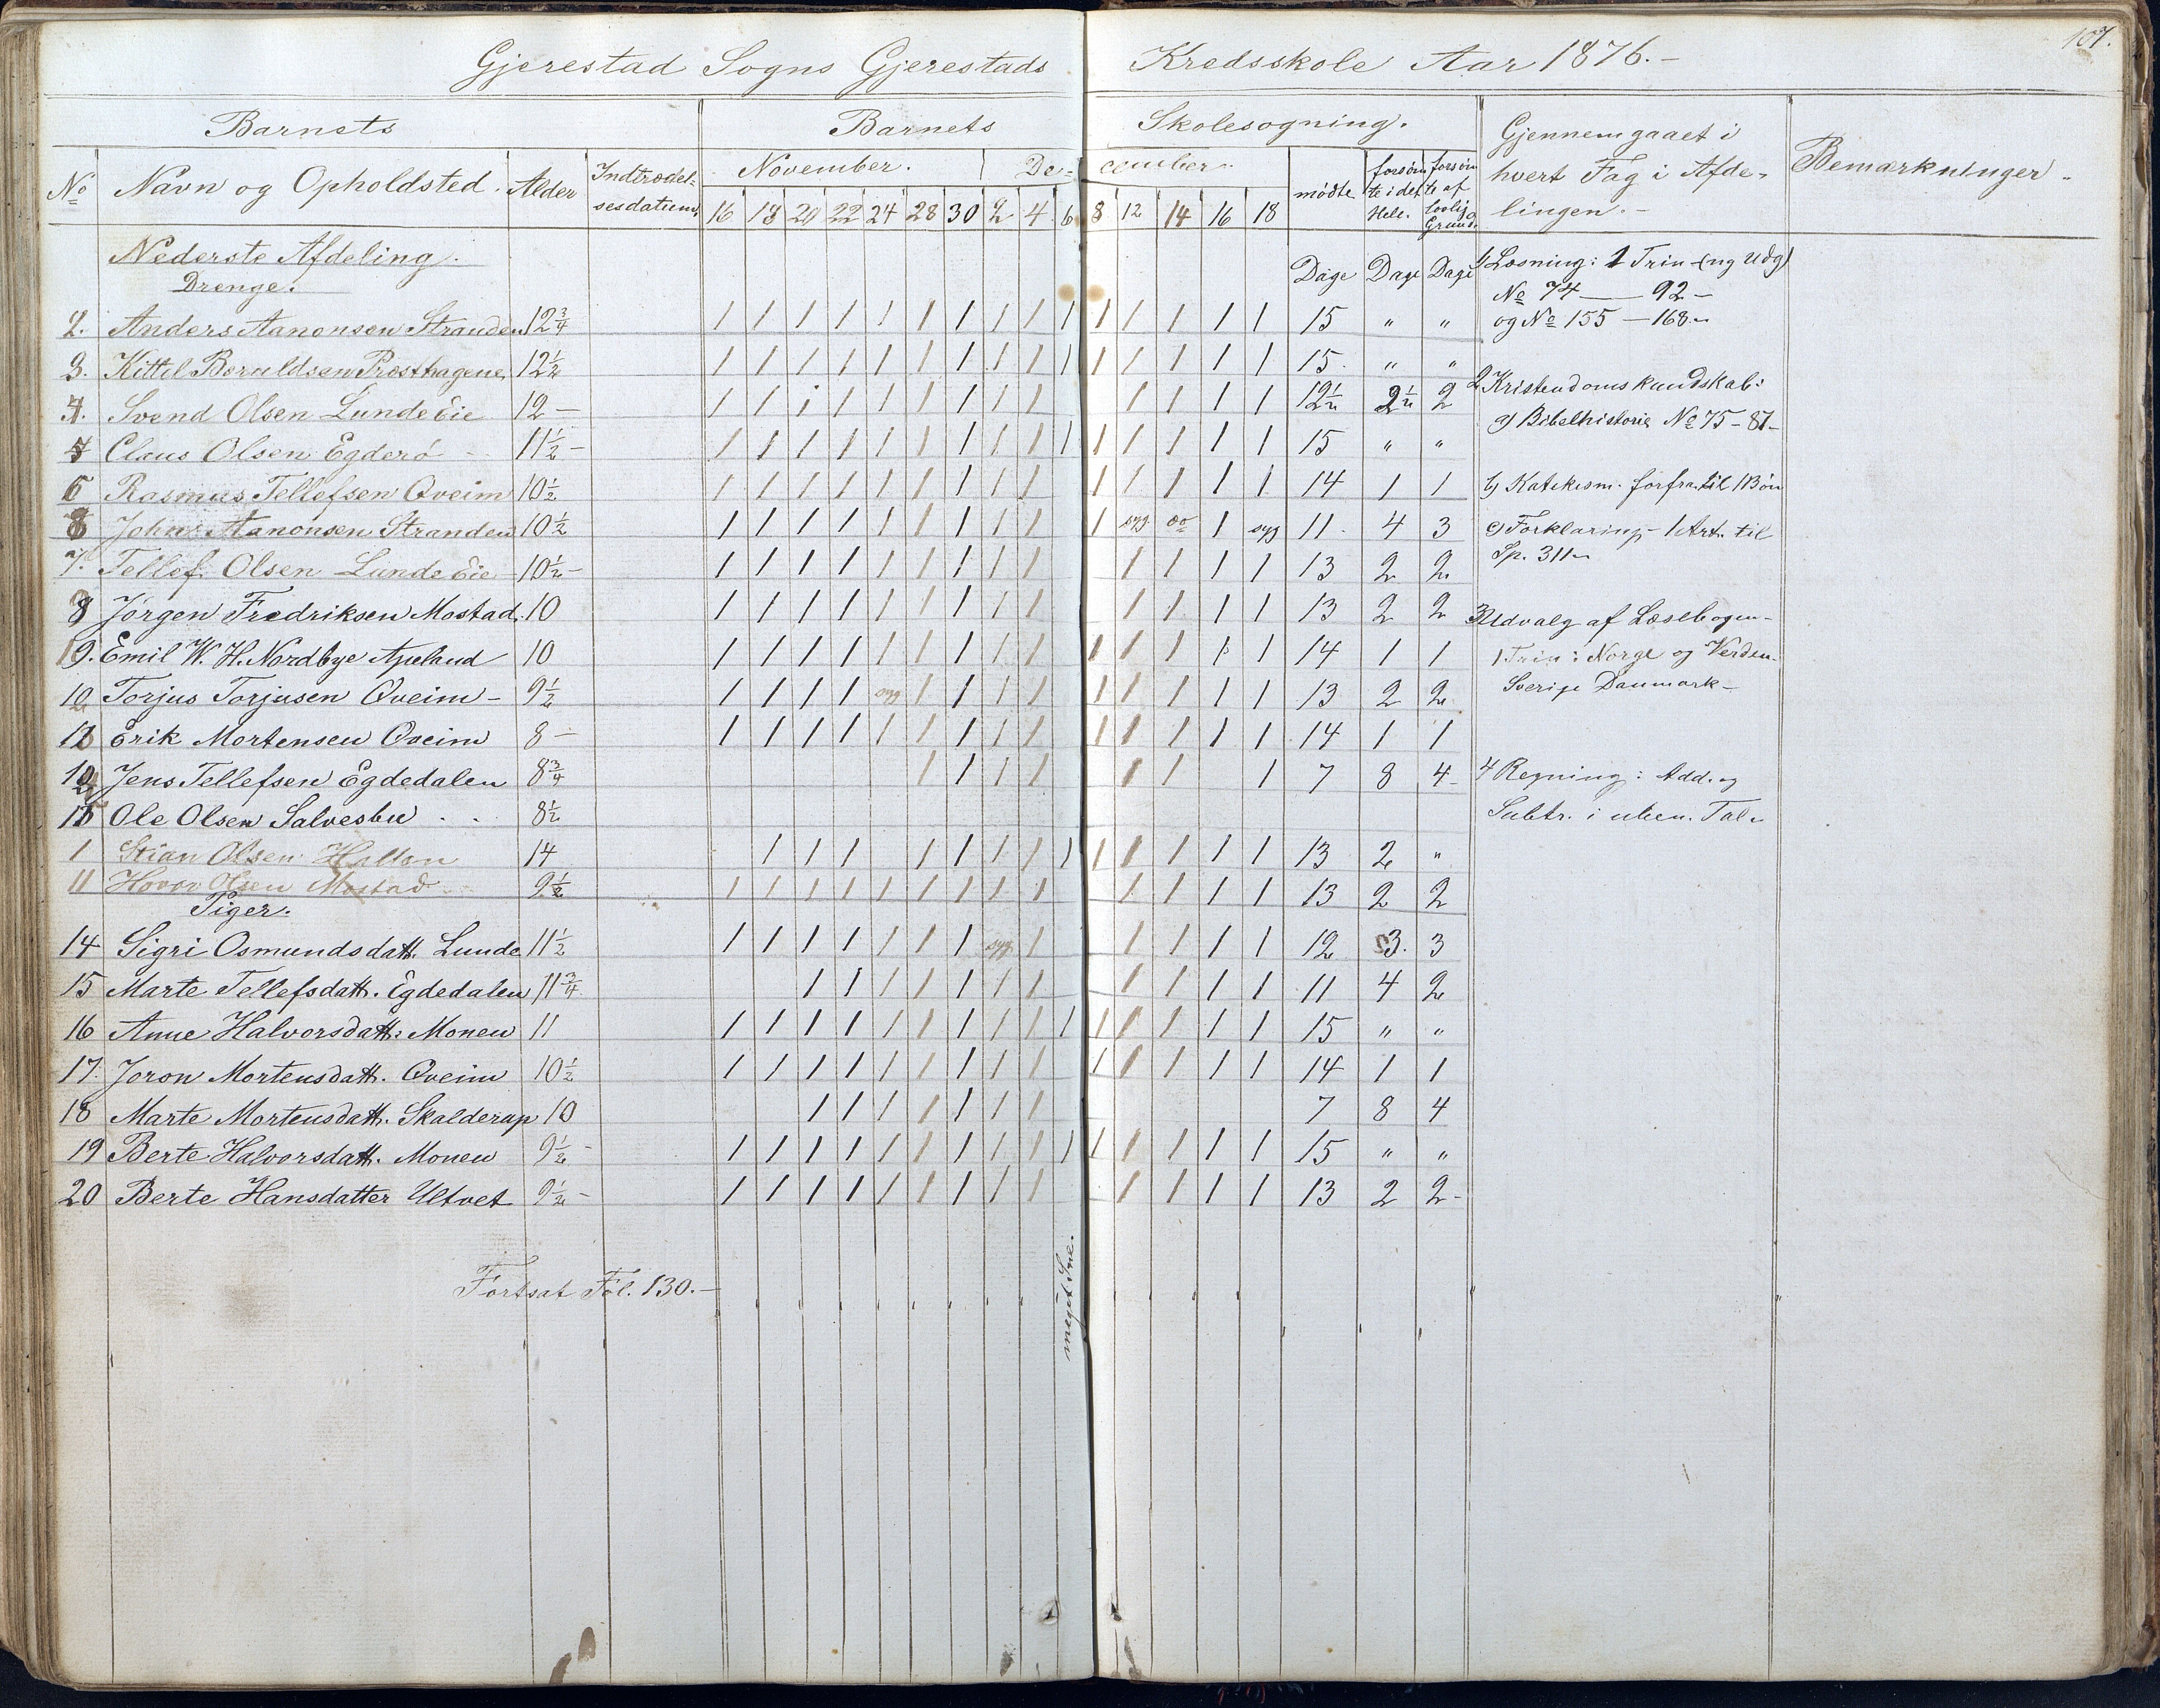 107.
Gjerestad Sogns Gjerestads Kredsskole Aar 1876.-
Barnets Barnets Skolesøgning. Gjennemgaaet i hvert Fag i Afdelingen.- Bemærkninger.
No Navn og Opholdsted. Alder Indtrædelsesdatum. November. December. mødte forsømte i det Hele. forsømte af lovlig Grund.
16 18 20 22 24 28 30 2 4 6 8 12 14 16 18
Nederste Afdeling. Dage Dage Dage
Drenge.
2. Anders Aanonsen Stranden 12¾ 1 1 1 1 1 1 1 1 1 1 1 1 1 1 1 15 " "
3. Kittel Beruldsen Præsthagene 12½ 1 1 1 1 1 1 1 1 1 1 1 1 1 1 1 15. " "
4. Svend Olsen Lunde Eie 12 - 1 1 1 1 1 1 1 1 1 1 1 1 1 12½ 2½ 2
Claus Olsen Egderø 11½ - 1 1 1 1 1 1 1 1 1 1 1 1 1 1 1 15 " "
6 Rasmus Tellefsen Qveim 10½ 1 1 1 1 1 1 1 1 1 1 1 1 1 1 14 1 1
8 John Aanonsen Stranden 10½ 1 1 1 1 1 1 1 1 1 1 syg do 1 syg 11. 4 3
7. Tellef Olsen Lunde Eie 10½ - 1 1 1 1 1 1 1 1 1 1 1 1 1 13 2 2
8 Jørgen Fredriksen Mostad. 10 1 1 1 1 1 1 1 1 1 1 1 1 1 13 2 2
9. Emil W. H. Nordbye Apeland 10 1 1 1 1 1 1 1 1 1 1 1 1 1 1 14 1 1
10 Torjus Torjusen Qveim - 9½ 1 1 1 1 syg 1 1 1 1 1 1 1 1 1 13 2 2
Erik Mortensen Qveim 8 - 1 1 1 1 1 1 1 1 1 1 1 1 1 1 14 1 1
Jens Tellefsen Egdedalen 8¾ 1 1 1 1 1 1 1 7 8 4
Ole Olsen Salvesbu . . 8½
1 Stian Olsen 14 1 1 1 1 1 1 1 1 1 1 1 1 1 13 2 "
11 Hovor Olsen Mostad 9½ 1 1 1 1 1 1 1 1 1 1 1 1 1 13 2 2
Piger.
14 Sigri Osmundsdatt. Lunde 11½ 1 1 1 1 1 1 1 syg 1 1 1 1 1 12 3. 3
15 Marte Tellefsdatt. Egdedalen 11¾ 1 1 1 1 1 1 1 1 1 1 1 11 4 2
16 Anne Halvorsdatt: Monen 11 1 1 1 1 1 1 1 1 1 1 1 1 1 1 1 15 " "
17. Joron Mortensdatt. Qveim 10½ 1 1 1 1 1 1 1 1 1 1 1 1 1 1 14 1 1
18 Marte Mortensdatt. Skalderap 10 1 1 1 1 1 1 1 7 8 4
19 Berte Halvorsdatt. Monen 9½ - 1 1 1 1 1 1 1 1 1 1 1 1 1 1 1 15 " "
20 Berte Hansdatter Ultvet 9½ - 1 1 1 1 1 1 1 1 1 1 1 1 1 13 2 2-
Fortsat Fol. 130.-
meget Sne.
1) Læsning: 1 Trin (ny Udg)
No 74 - 92 -
og No 155 - 168.
2 Kristendomskundskab:
a) Bibelhistorie No 75 - 87-
b) Katekism. forfra til 1 Bøn
c) Forklaring - 1 Art. til
Sp. 311
3 Udvalg af Læsebogen-
1 Trin: Norge og Verden.
Sverige Danmark -
4 Regning: Add. og
Subtr. i uben. Tal.